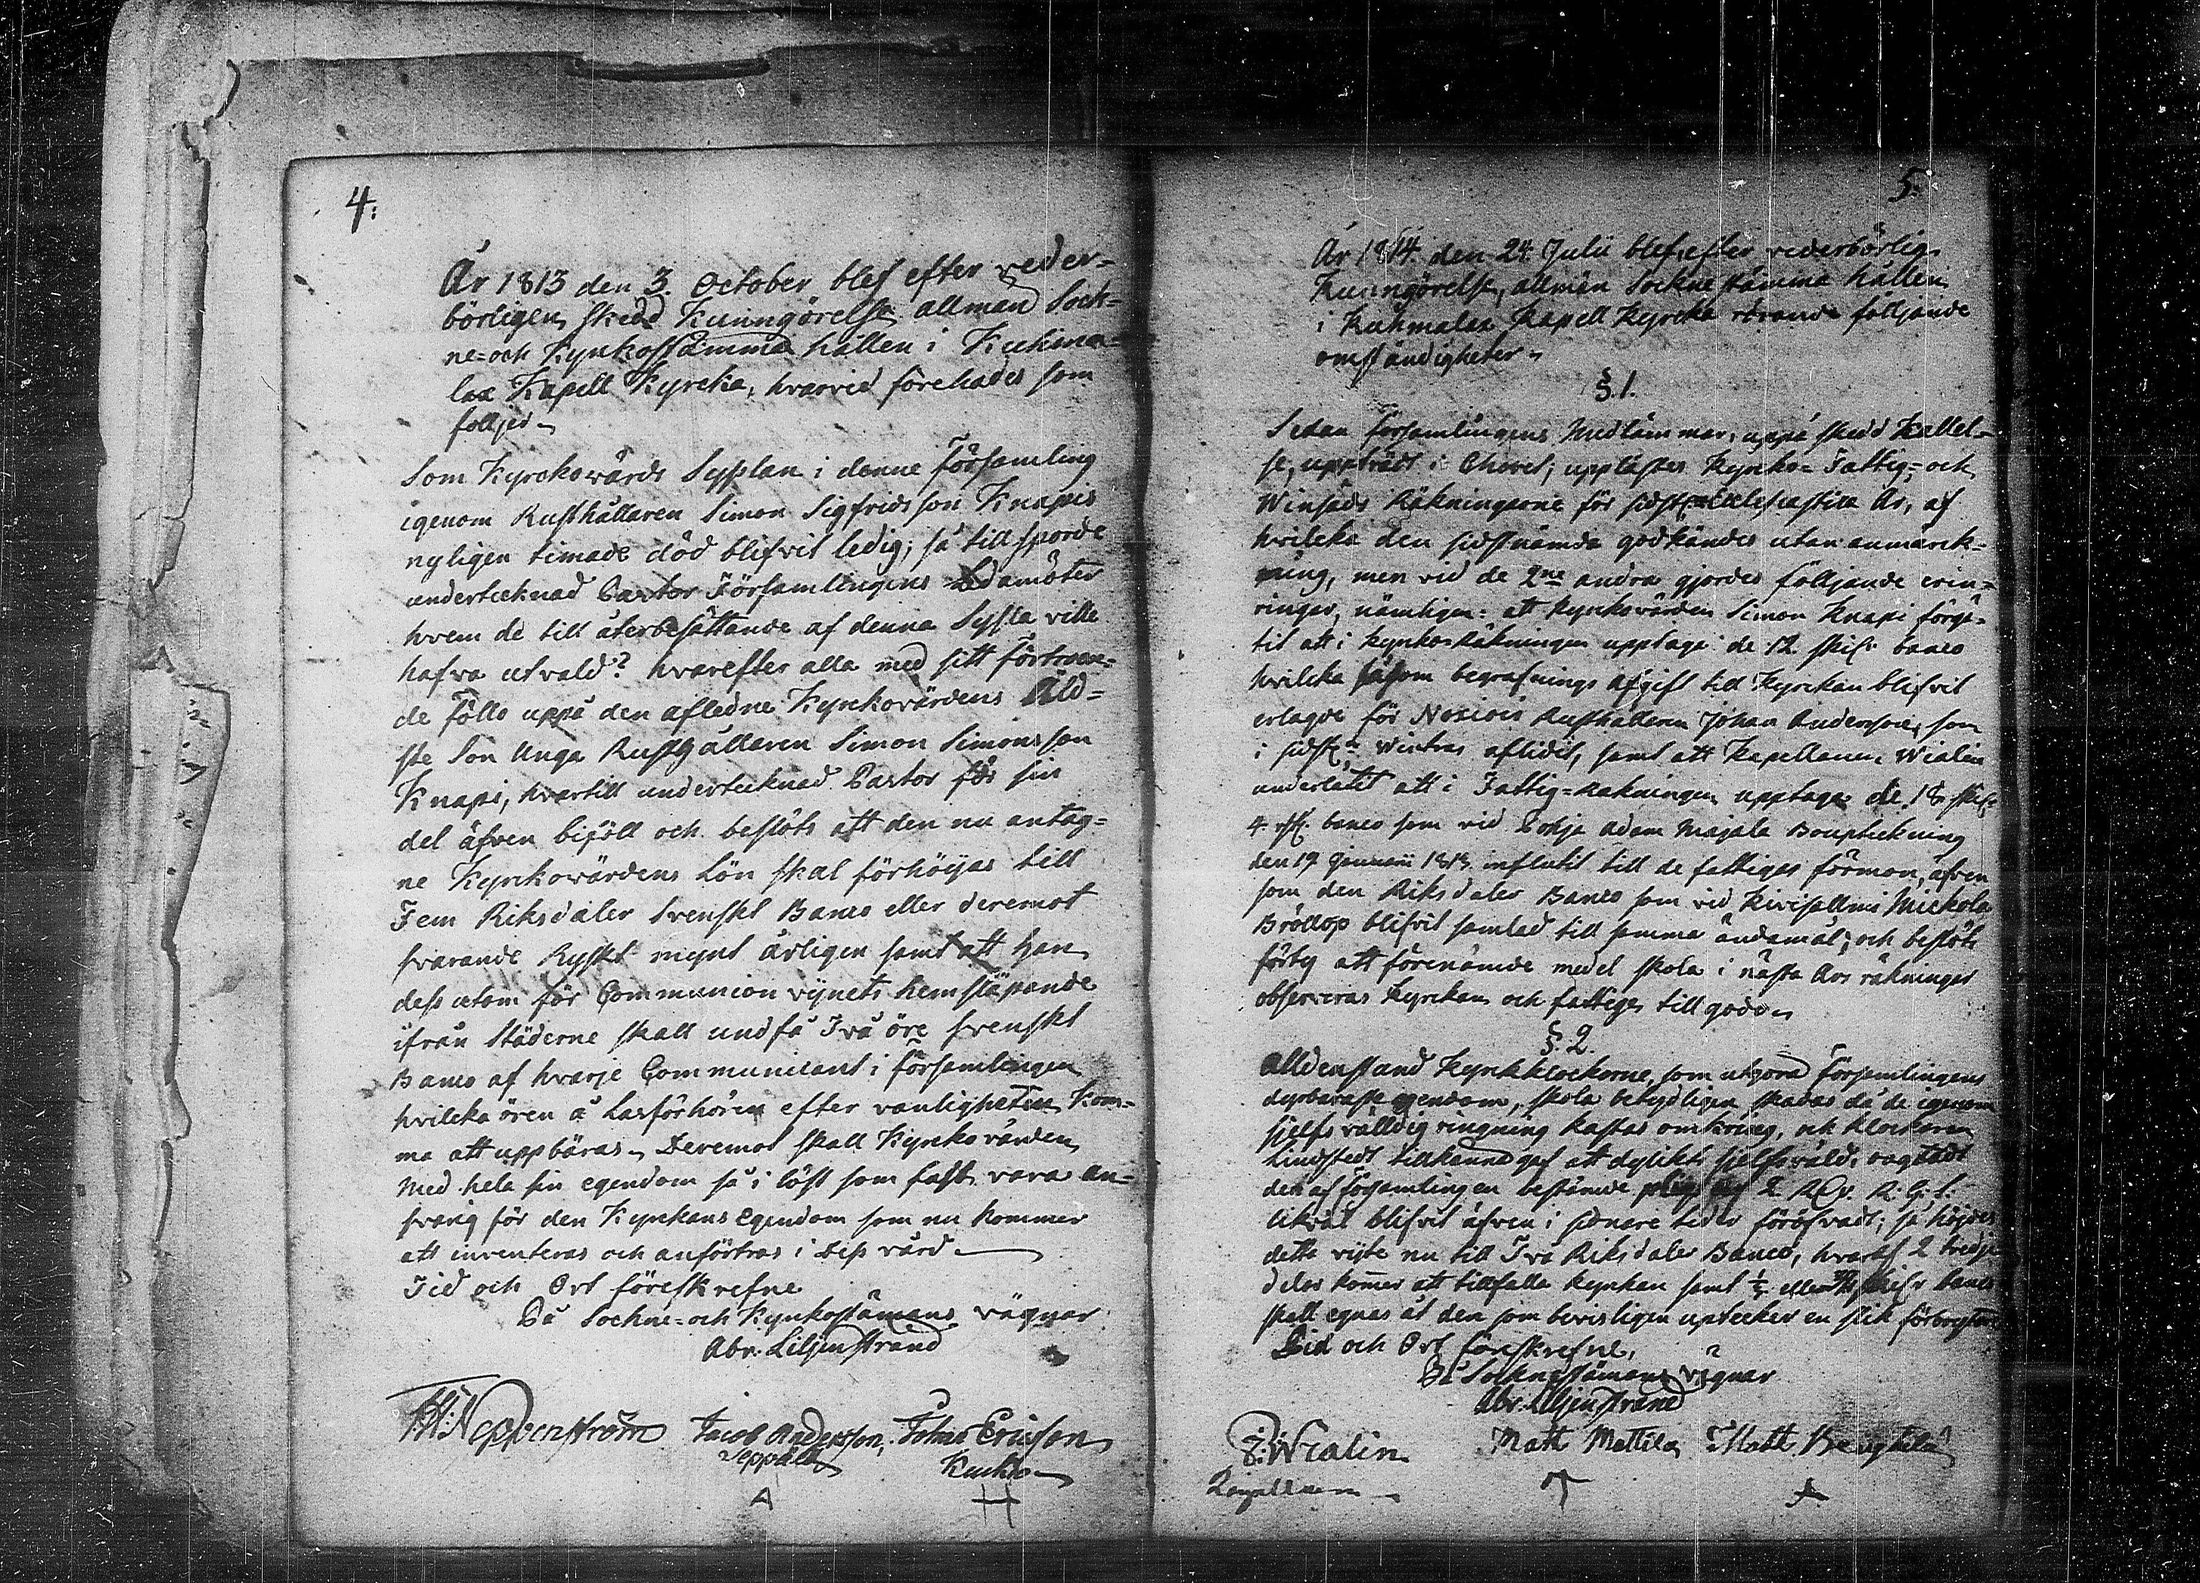 4.
År 1813 den 3. October blef efter veder=
börligen skedd Kunngörelse allmän Sock=
ne= och Kyrkostämma hållen i Kuhma=
lax Kapell Kyrcka, hvarvid förehades som
följer
Som Kyrckovärds Sysslan i denne Församling
igenom Rusthållaren Simon Sigfridsson Knapis
nyligen timade död blifvit ledig; så tillsporde
undertecknad Pastor Församlingens Ledamöter
hvem de till återbesättande af denna Syssla ville
hafva utvald? hvarefter alla med sitt förtroen=
de föllo uppå den aflidne Kyrckovärdens Äld=
ste Son Unga Rusthållaren Simon Simonsson
Knapi, hvartill undertecknad Pastor för sin
del äfven biföll och beslöts att den nu antag=
ne Kyrckovärdens Lön skal förhöijas till
Fem Riksdaler Svenskt Banco eller deremot
svarande Ryskt mynt årligen samt att han
dess utom för Communion vijnets hemsläpande
ifrån Städerne skall undfå Två öre svenskt
Banco af hvarje Communicant i församlingen
hvilcka ören å Läsförhören efter vanligheten kom=
ma att uppbäras. Deremot skall Kyrckovärden
med hela sin egendom så i löst som fast vara an=
svarig för den Kyrckans Egendom som nu kommer
att inventeras och anförtros i Dess vård.
Tid och Ort föreskrefne
På Sockne= och Kyrkostämans vägnar
Abr. Liljenstrand
Jacob Andersson Johan Ericsson
Seppälä Kuckio
A H
5.
År 1814 den 24 Julii blef, efter vederbörlig
Kunngörelse, allmän Sockne stämma hållen
i Kuhmalax Kapell Kyrcka rörande följande
omständigheter
§.1.
Sedan Församlingens Medlämmar, uppå skedd Kallel=
se, uppträdt i Choret, upplästes Kyrko= Fattig= och
Winsäds Räkningarne för sidst År, af
hvilcka den sidstnämda godkändes utan anmärck=
ning, men vid de 2ne andra gjordes följande erin=
ringar, nämligen: att Kyrckovärden Simon Knapi förgä=
tit att i Kyrko= Räkningen upptaga de 12 skil. banco
hvilcka såsom begrafnings afgift till Kyrckan blifvit
erlagde för Rusthållaren Johan Anderson, som
i sidst. Wintras aflidit, samt att Kapellanen Wialin
underlåtit att i Fattig=Räkningen upptaga de 18 skil
4 rst. banco som vid Adam Majala Bouptekning
den 19 Januarii influtit till de fattigas förmon, äfven
som den Riksdaler Banco som vid Mickola
Bröllop blifvit samlad till samma ändamål; och beslöts
förty att förenämde medel skola i nästa års räkningar
observeras Kyrckan och fattiga till godo.
§.2.
Alldenstund Kyrkklockorne, som utgöra Församlingens
dyrbaraste egendom, skola betydligen skadas då de igenom
sjelfsvåldig ringning kastas omkring, och Klockaren
Lindstedt tillkänna gaf att dylikt sjelfsvåld, oagtadt
det af Församlingen bestämde af 2
likväl blifvit äfven i senare tider föröfvadt; så höjdes
detta vijte nu till Två Riksdaler Banco, hvaraf 2 tredje
delar kommer att tillfalla Kyrkan samt 1/3 eller skil. banco
skall egnas åt den som bevisligen uptäcker en slik förbrytare
Tid och Ort föreskrefne.
På Sockne stämans vägnar
Abr. Liljenstrand
Wialin Matt Mattila Matt Bengtilä
Kapellan